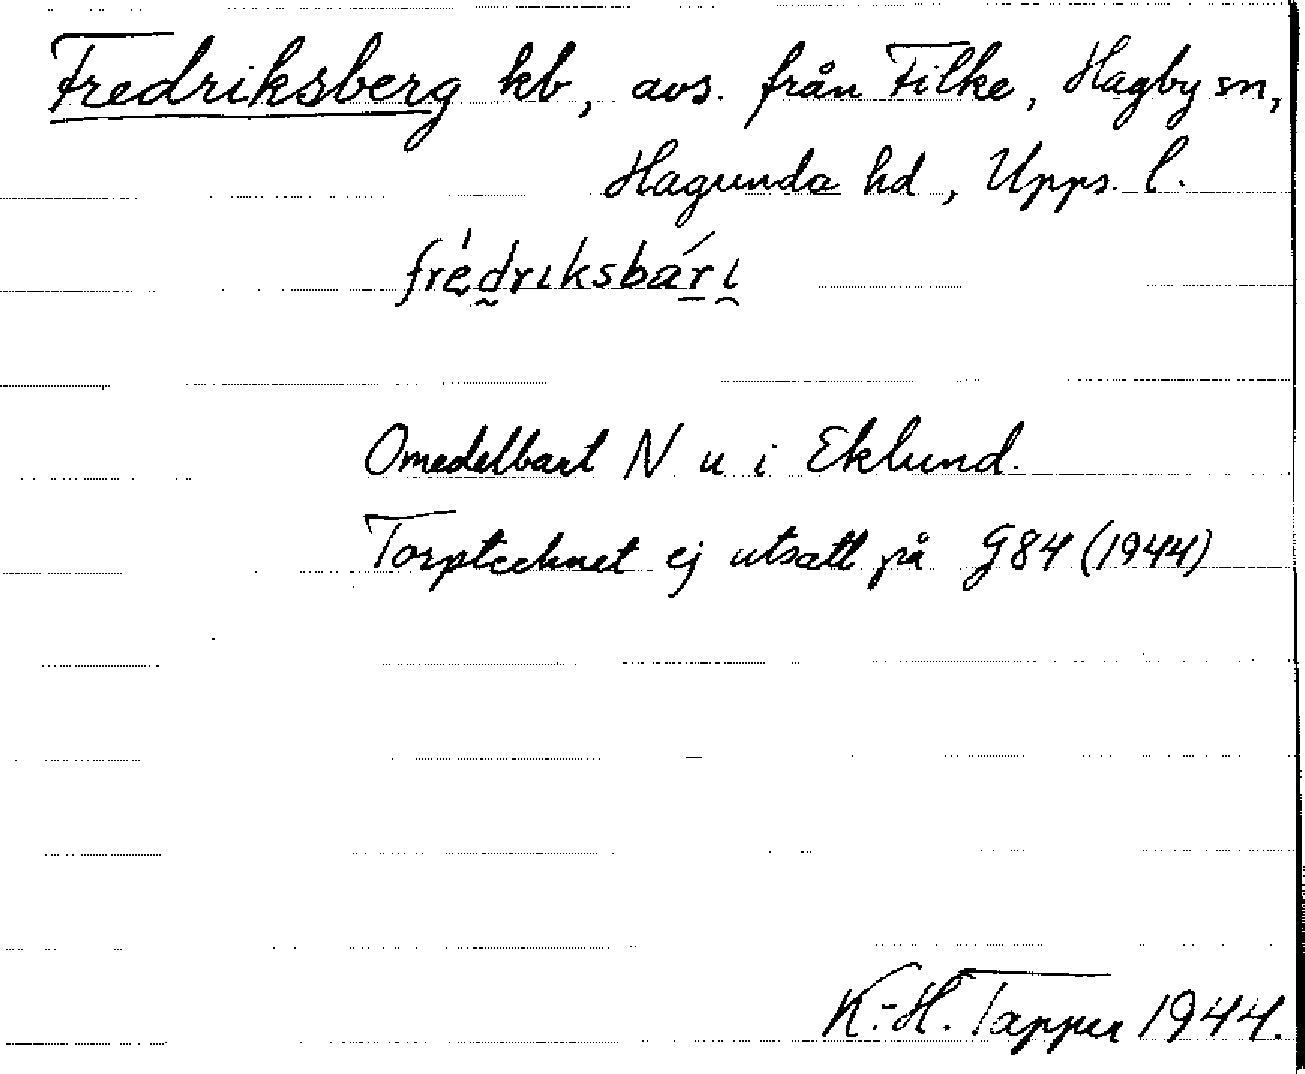 Fredriksberg kb, avs. från Filke, Hagby sn,
Hagunda hd, Upps. l.
frédriksbári
Omedelbart N u i Eklund.
Torptecknet ej utsatt på G84 (1944)
K.-H. Tapper 1944.